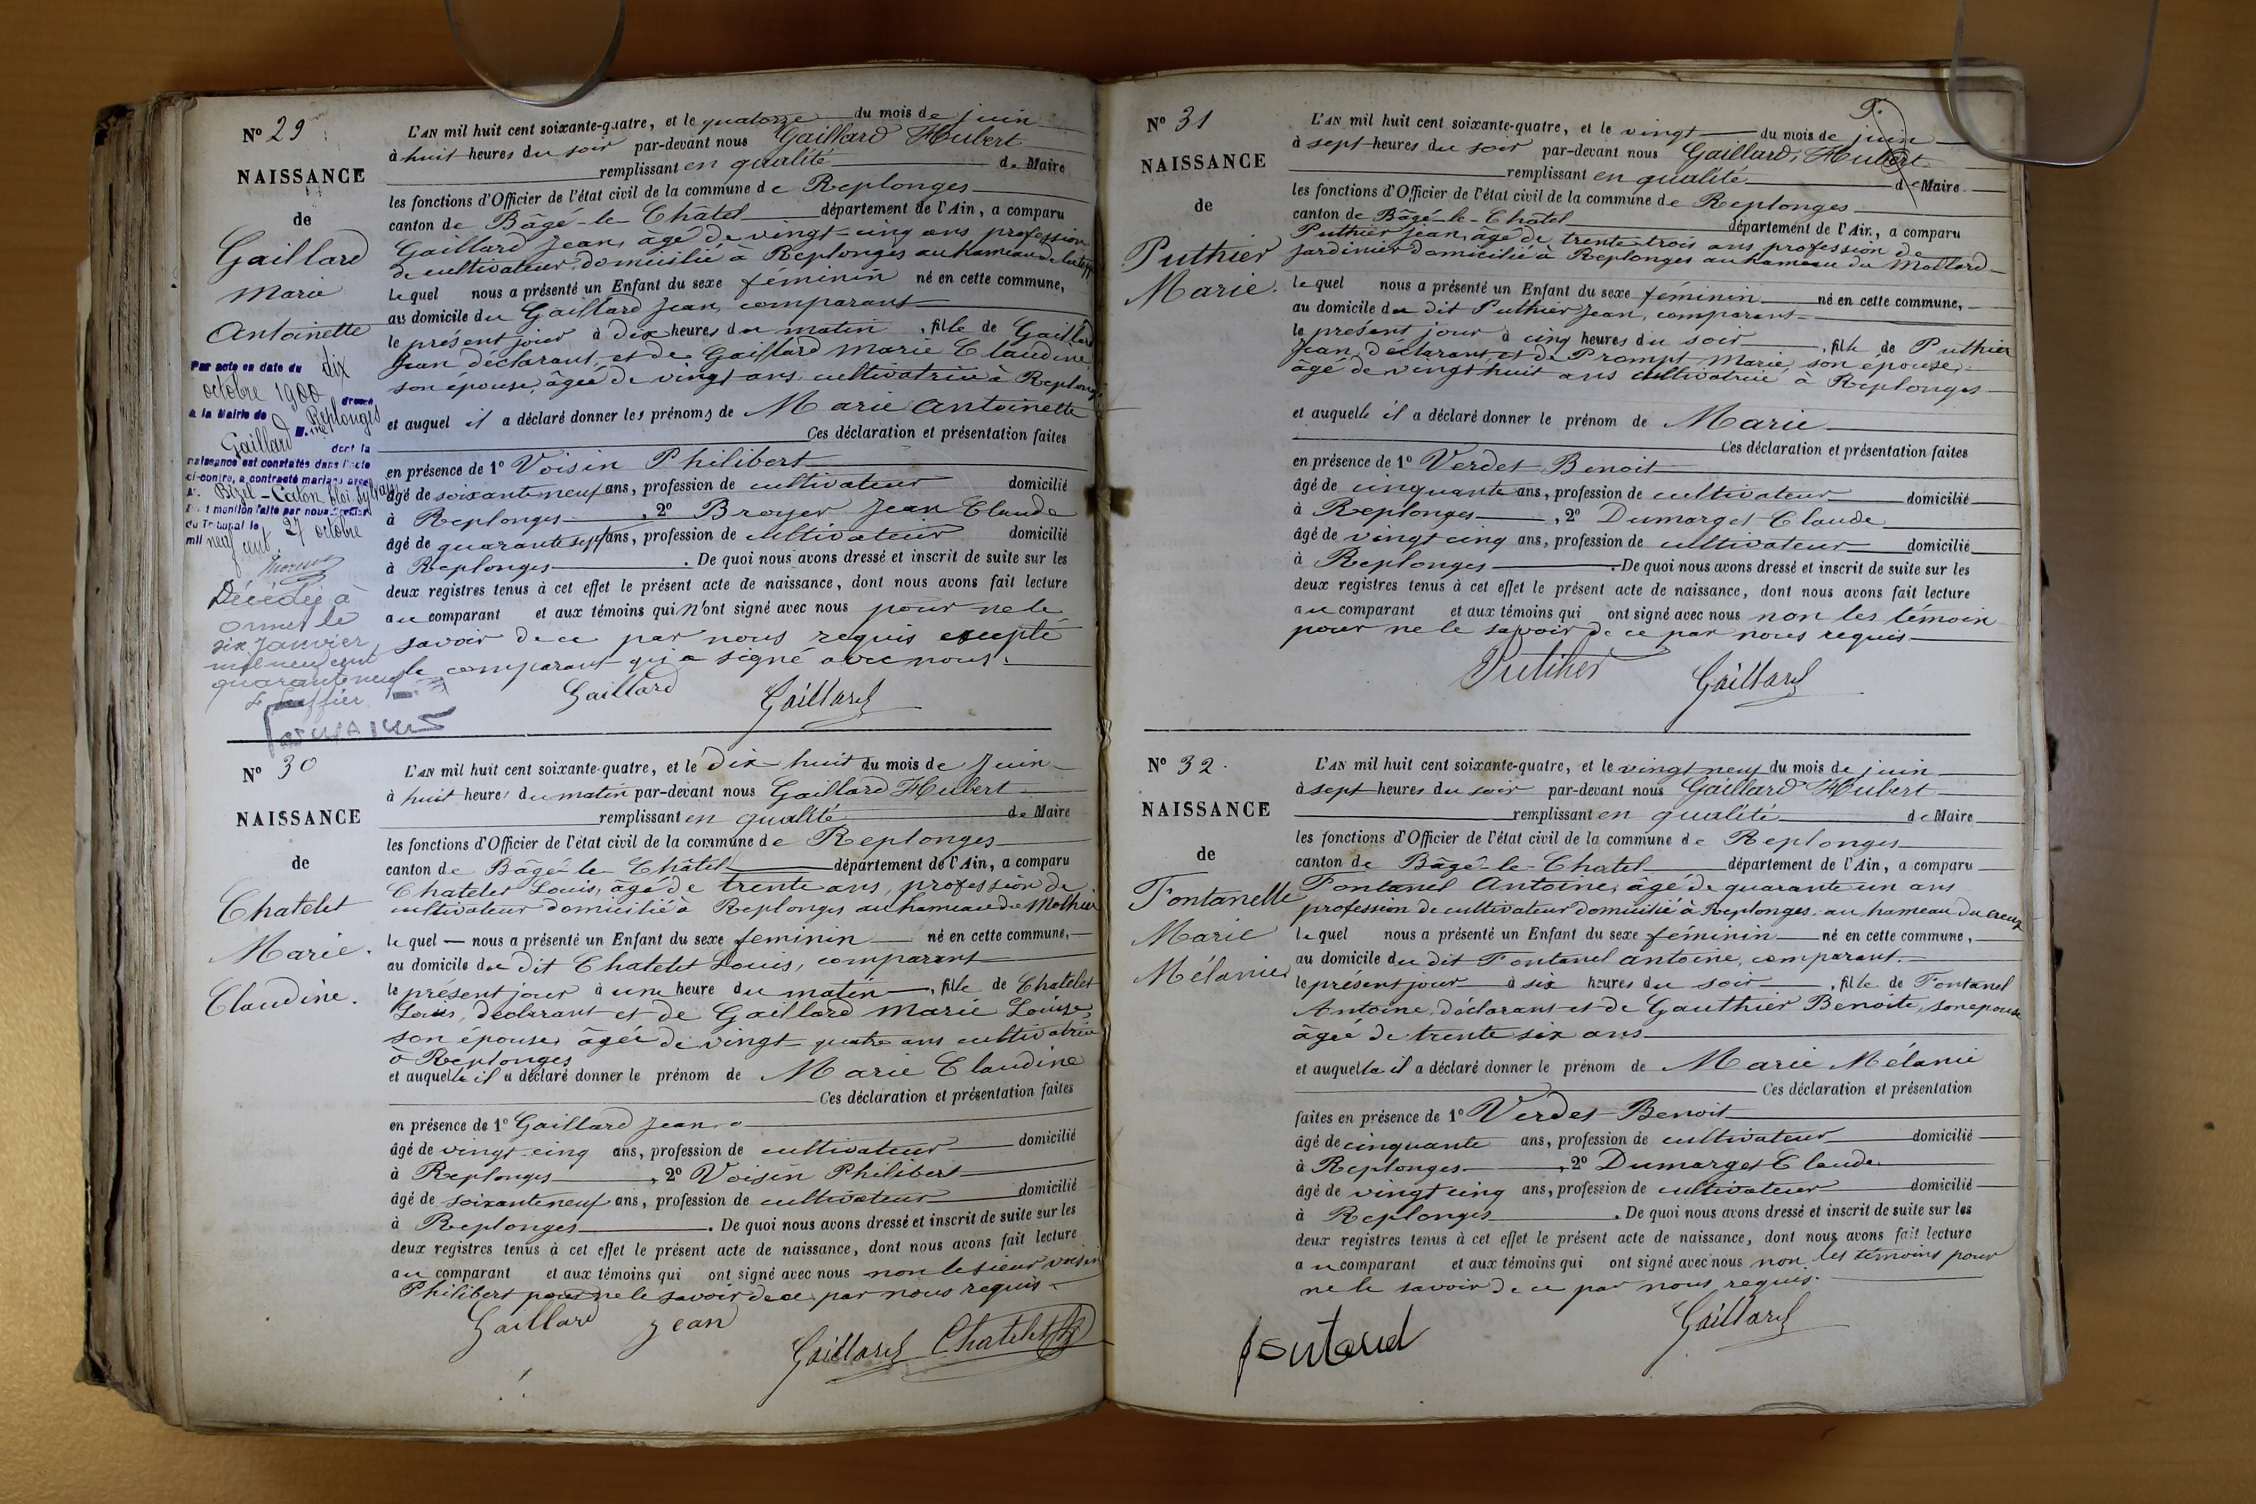 N° 29
NAISSANCE
de
Gaillard
Marie
Antoinette
Par acte en date du dix
octobre 1900 dressé
à la Mairie de Replonges
Gaillard M. ine
dont la
naissance est constatée dans l'acte
ci-contre, a contracté mariage avec
Bizel-Caton Éloi Sylvain
mention faite par nous Greffier
du Tribunal le 27 octobre
mil neuf cent
Décédée à
le
six Janvier
mil neuf cent
quarante neuf
Le Greffier
L'AN mil huit cent soixante-quatre, et le quatorze du mois de juin
à huit heures du soir par-devant nous Gaillard Hubert
remplissant en qualité de Maire
les fonctions d'Officier de l'état civil de la commune de Replonges
canton de Bâgé-le-Châtel département de l'Ain, a comparu
Gaillard Jean, âgé de vingt-cinq ans profession
de cultivateur domicilié à Replonges au hameau de
lequel nous a présenté un Enfant du sexe féminin né en cette commune,
au domicile du Gaillard Jean, comparant
le présent jour à dix heures du matin, fille de Gaillard
Jean déclarant, et de Gaillard Marie Claudine
son épouse, âgée de vingt ans, cultivatrice à Replonges
et auquel il a déclaré donner les prénoms de Marie Antoinette
Ces déclaration et présentation faites
en présence de 1° Voisin Philibert
âgé de soixante neuf ans, profession de cultivateur domicilié
à Replonges, 2° Broyer Jean Claude
âgé de quarante sept ans, profession de cultivateur domicilié
à Replonges. De quoi nous avons dressé et inscrit de suite sur les
deux registres tenus à cet effet le présent acte de naissance, dont nous avons fait lecture
au comparant et aux témoins qui n'ont signé avec nous pour ne le
savoir de ce par nous requis excepté
le comparant qui a signé avec nous.
Gaillard Gaillard
N° 30
NAISSANCE
de
Chatelet
Marie.
Claudine.
L'AN mil huit cent soixante-quatre, et le dix-huit du mois de Juin
à huit heures du matin par-devant nous Gaillard Hubert
remplissant en qualité de Maire
les fonctions d'Officier de l'état civil de la commune de Replonges
canton de Bâgé-le-Châtel département de l'Ain, a comparu
Chatelet Louis, âgé de trente ans, profession de
cultivateur domicilié à Replonges au hameau de Mathier
lequel nous a présenté un Enfant du sexe feminin né en cette commune,
au domicile du dit Chatelet Louis, comparant
le présent jour à une heure du matin, fille de Chatelet
Louis, déclarant et de Gaillard Marie Louise
son épouse, âgée de vingt-quatre ans cultivatrice
à Replonges
et auquelle il a déclaré donner le prénom de Marie Claudine
Ces déclaration et présentation faites
en présence de 1° Gaillard Jean
âgé de vingt-cinq ans, profession de cultivateur domicilié
à Replonges, 2° Voisin Philibert
âgé de soixante neuf ans, profession de cultivateur domicilié
à Replonges. De quoi nous avons dressé et inscrit de suite sur les
deux registres tenus à cet effet le présent acte de naissance, dont nous avons fait lecture
au comparant et aux témoins qui ont signé avec nous non le sieur voisin
Philibert pour ne le savoir de ce par nous requis
Gaillard Jean
Gaillard Chatelet
N° 31
NAISSANCE
de
Puthier
Marie.
L'AN mil huit cent soixante-quatre, et le vingt du mois de juin
à sept heures du soir par-devant nous Gaillard, Hubert
remplissant en qualité de Maire
les fonctions d'Officier de l'état civil de la commune de Replonges
canton de Bâgé-le-Châtel département de l'Ain, a comparu
Puthier Jean, âgé de trente trois ans profession de
Jardinier domicilié à Replonges au hameau du Mollard
lequel nous a présenté un Enfant du sexe féminin né en cette commune,
au domicile du dit Puthier Jean, comparant
le présent jour à cinq heures du soir, fille de Puthier
Jean, déclarant et de Prompt Marie, son épouse,
âgé de vingt huit ans cultivatrice à Replonges
et auquelle il a déclaré donner le prénom de Marie
Ces déclaration et présentation faites
en présence de 1° Verdet Benoit
âgé de cinquante ans, profession de cultivateur domicilié
à Replonges, 2° Dumarget Claude
âgé de vingt cinq ans, profession de cultivateur domicilié
à Replonges. De quoi nous avons dressé et inscrit de suite sur les
deux registres tenus à cet effet le présent acte de naissance, dont nous avons fait lecture
au comparant et aux témoins qui ont signé avec nous non les témoin
pour ne le savoir de ce par nous requis
Puthier Gaillard
N° 32.
NAISSANCE
de
Fontanelle
Marie
Mélanie
L'AN mil huit cent soixante-quatre, et le vingt neuf du mois de juin
à sept heures du soir par-devant nous Gaillard Hubert
remplissant en qualité de Maire
les fonctions d'Officier de l'état civil de la commune de Replonges
canton de Bâgé-le-Chatel département de l'Ain, a comparu
Fontanel Antoine, âgé de quarante un ans
profession de cultivateur domicilié à Replonges au hameau du Creux
lequel nous a présenté un Enfant du sexe féminin né en cette commune,
au domicile du dit Fontanel Antoine, comparant.
le présent jour à six heures du soir, fille de Fontanel
Antoine, déclarant et de Gauthier Benoite, son épouse
âgée de trente six ans
et auquelle il a déclaré donner le prénom de Marie Mélanie
Ces déclaration et présentation
faites en présence de 1° Verdet Benoit
âgé de cinquante ans, profession de cultivateur domicilié
à Replonges, 2° Dumarget Claude
âgé de vingt cinq ans, profession de cultivateur domicilié
à Replonges. De quoi nous avons dressé et inscrit de suite sur les
deux registres tenus à cet effet le présent acte de naissance, dont nous avons fait lecture
au comparant et aux témoins qui ont signé avec nous non les témoins pour
ne le savoir de ce par nous requis.
Gaillard
fontanel